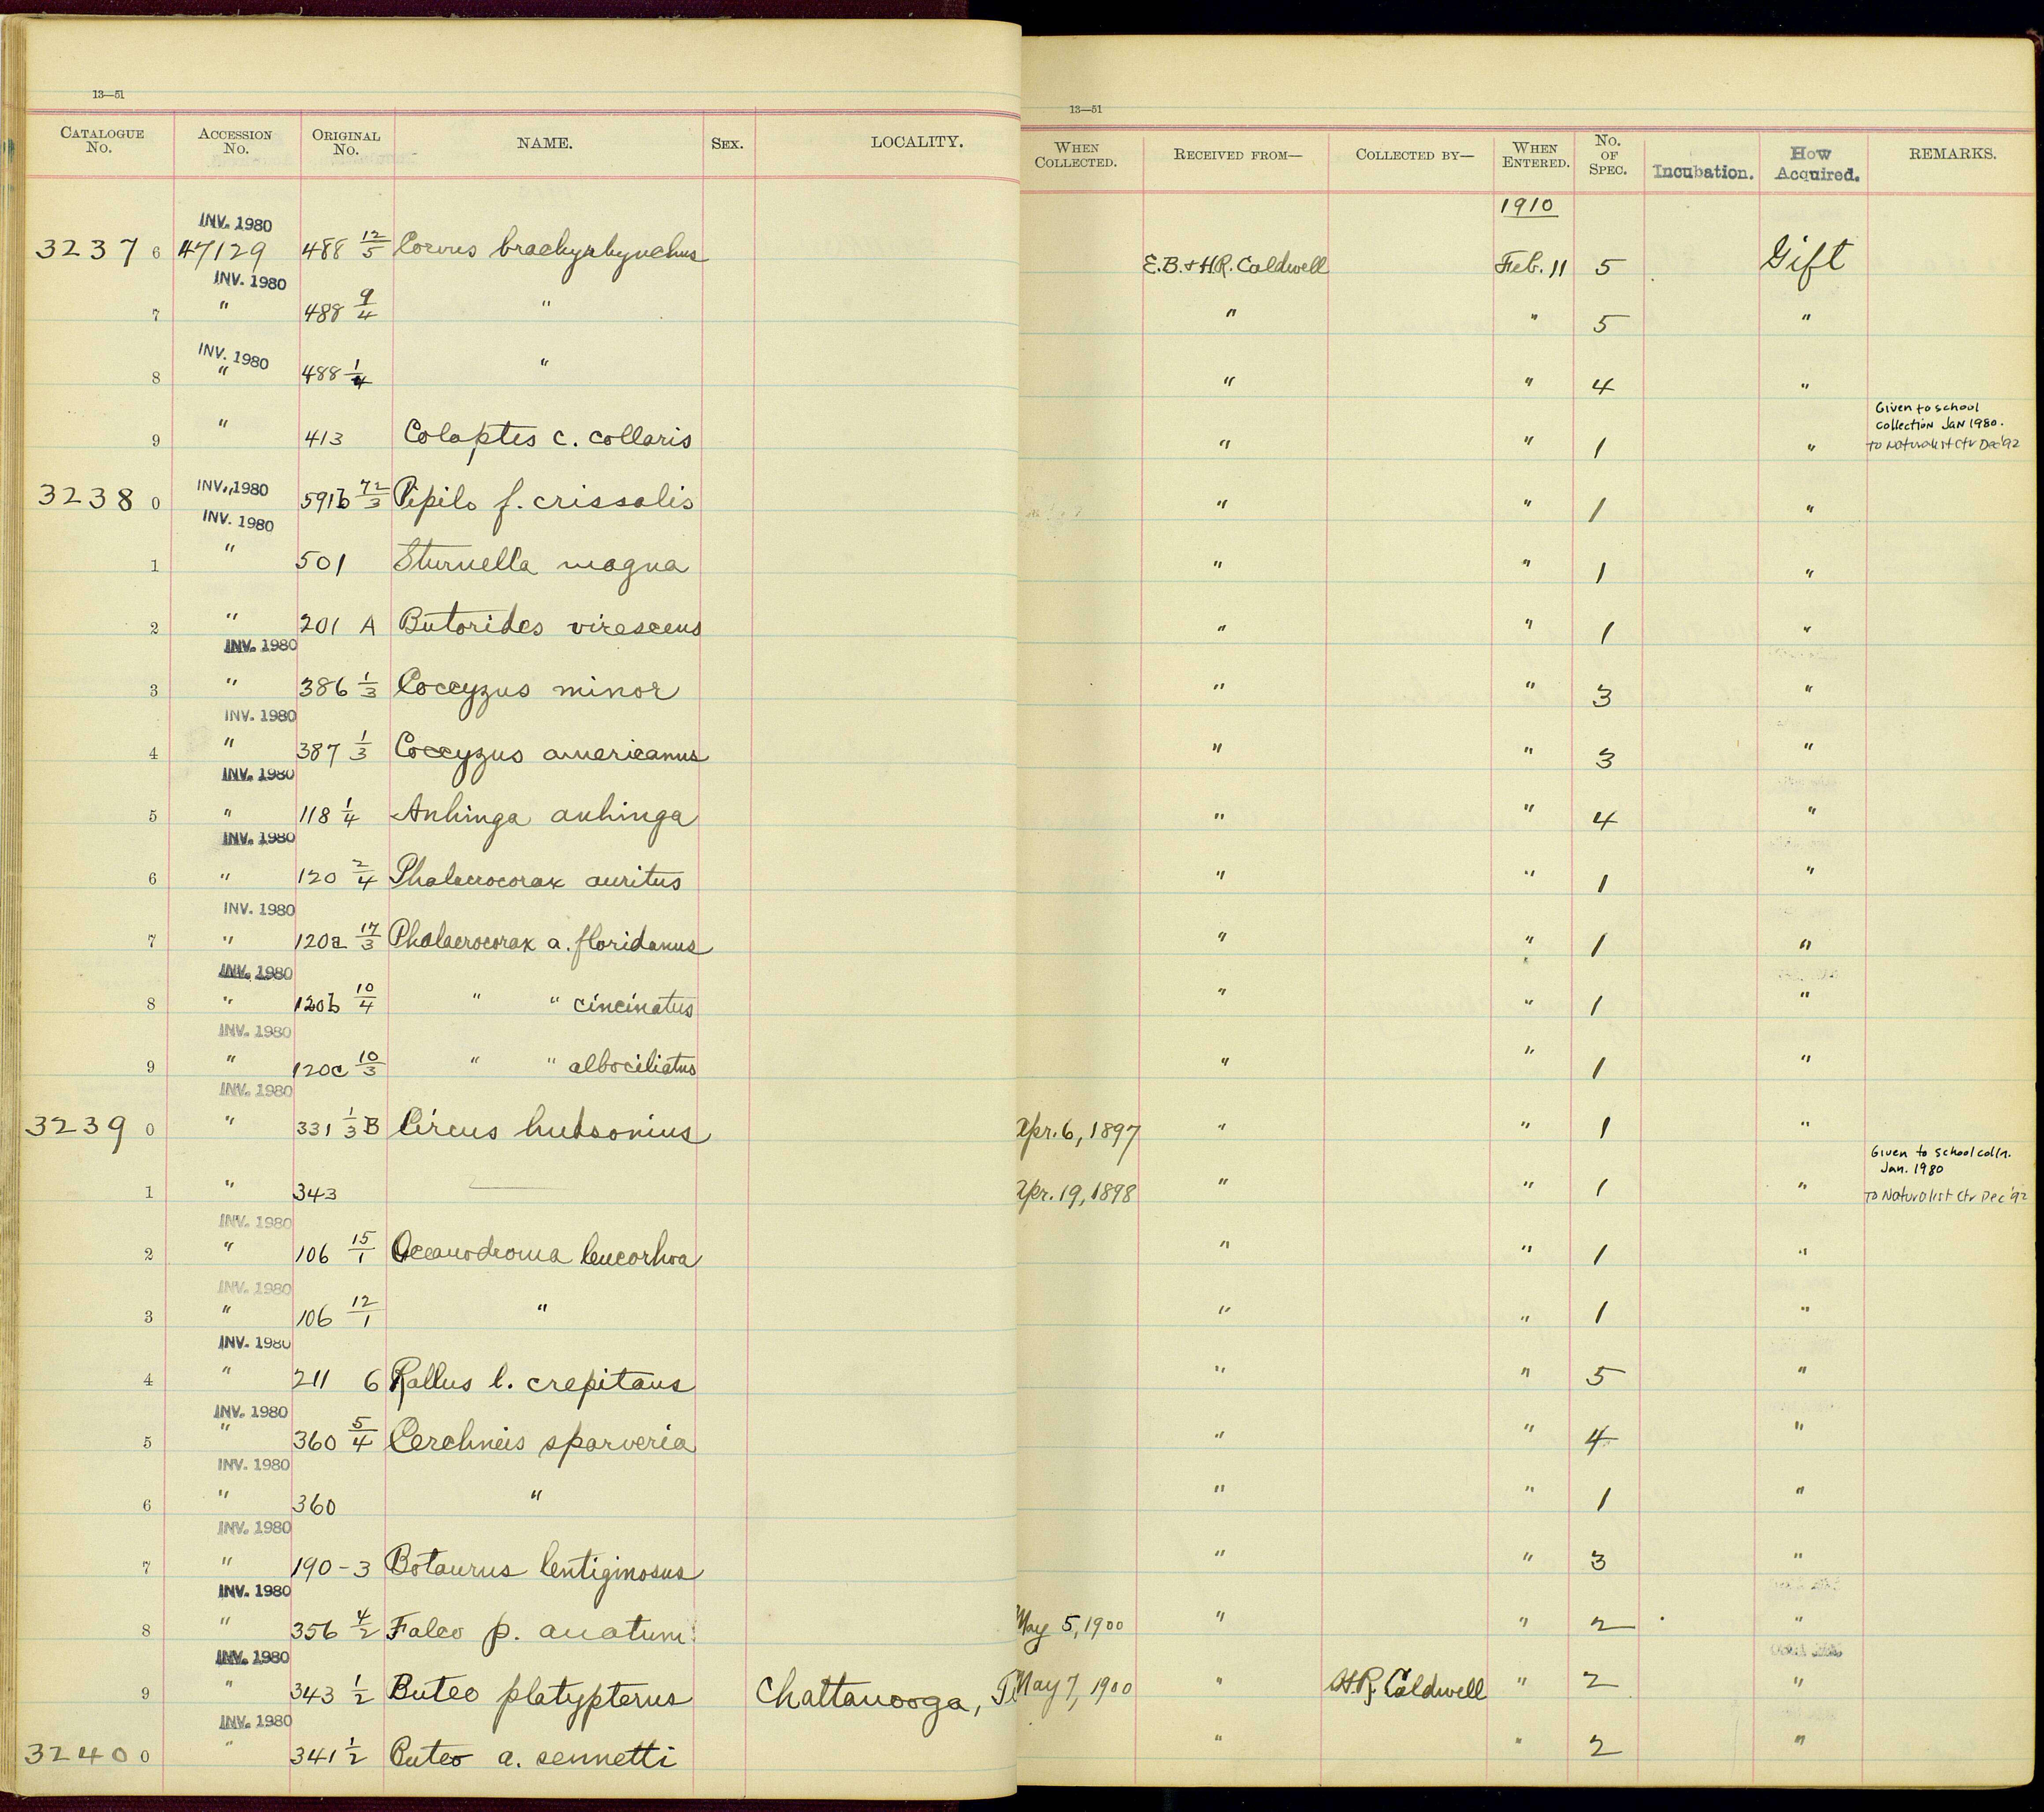 13—51
13—51
CATALOGUE No. ACCESSION No. ORIGINAL No. NAME. SEX. LOCALITY. WHEN COLLECTED. RECEIVED FROM— COLLECTED BY— WHEN ENTERED. No. OF SPEC. Incubation. How Acquired. REMARKS.
1910
INV. 1980
3237 6 47129 488 12/5 Corvus brachyrhynchus E.B. & H.R. Caldwell Feb. 11 5 Gift
INV. 1980
7 " 488 9/4 " " " 5 "
INV. 1980
8 " 488 1/4 " " " 4 "
Given to school
collection Jan 1980.
9 " 413 Colaptes c. collaris " " 1 " To Naturalist Ctr Dec '92
3238 0 INV. 1980 " 591b 72/3 Pipilo f. crissalis " " 1 "
INV. 1980
1 " 501 Sturnella magna " " 1 "
2 " 201 A Butorides virescens " " 1 "
INV. 1980
3 " 386 1/3 Coccyzus minor " " 3 "
INV. 1980
4 " 387 1/3 Coccyzus americanus " " 3 "
INV. 1980
5 " 118 1/4 Anhinga anhinga " " 4 "
INV. 1980
6 " 120 2/4 Phalacrocorax auritus " " 1 "
INV. 1980
7 " 120a 17/3 Phalacrocorax a. floridanus " " 1 "
INV. 1980
8 " 120b 10/4 " " cincinatus " " 1 "
INV. 1980
9 " 120c 10/3 " " albociliatus " " 1 "
INV. 1980
3239 0 " 331 1/3 B Circus hudsonius Apr. 6, 1897 " " 1 "
Given to school colln.
Jan. 1980
1 " 343 — Apr. 19, 1898 " " 1 " To Naturalist Ctr Dec '92
INV. 1980
2 " 106 15/1 Oceanodroma leucorhoa " " 1 "
INV. 1980
3 " 106 12/1 " " " 1 "
INV. 1980
4 " 211 6 Rallus l. crepitans " " 5 "
INV. 1980
5 " 360 5/4 Cerchneis sparveria " " 4 "
INV. 1980
6 " 360 " " " 1 "
INV. 1980
7 " 190-3 Botaurus lentiginosus " " 3 "
INV. 1980
8 " 356 4/2 Falco p. anatum May 5, 1900 " " 2 "
INV. 1980
9 " 343 1/2 Buteo platypterus Chattanooga, May 7, 1900 " H.R. Caldwell " 2 "
INV. 1980
3240 0 " 341 1/2 Buteo a. sennetti " " 2 "